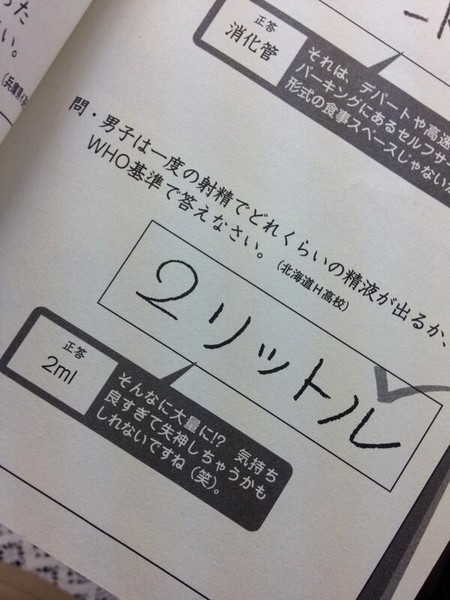 った
い。
正答
消化管
それは、デパートや高速
パーキングにあるセルフサー
形式の食事スペースじゃないか
問・男子は一度の射精でどれくらいの精液が出るか、
WHO基準で答えなさい。(北海道H高校)
2リットル
正答
2ml
そんなに大量に!? 気持ち
良すぎて失神しちゃうかも
しれないですね(笑)。